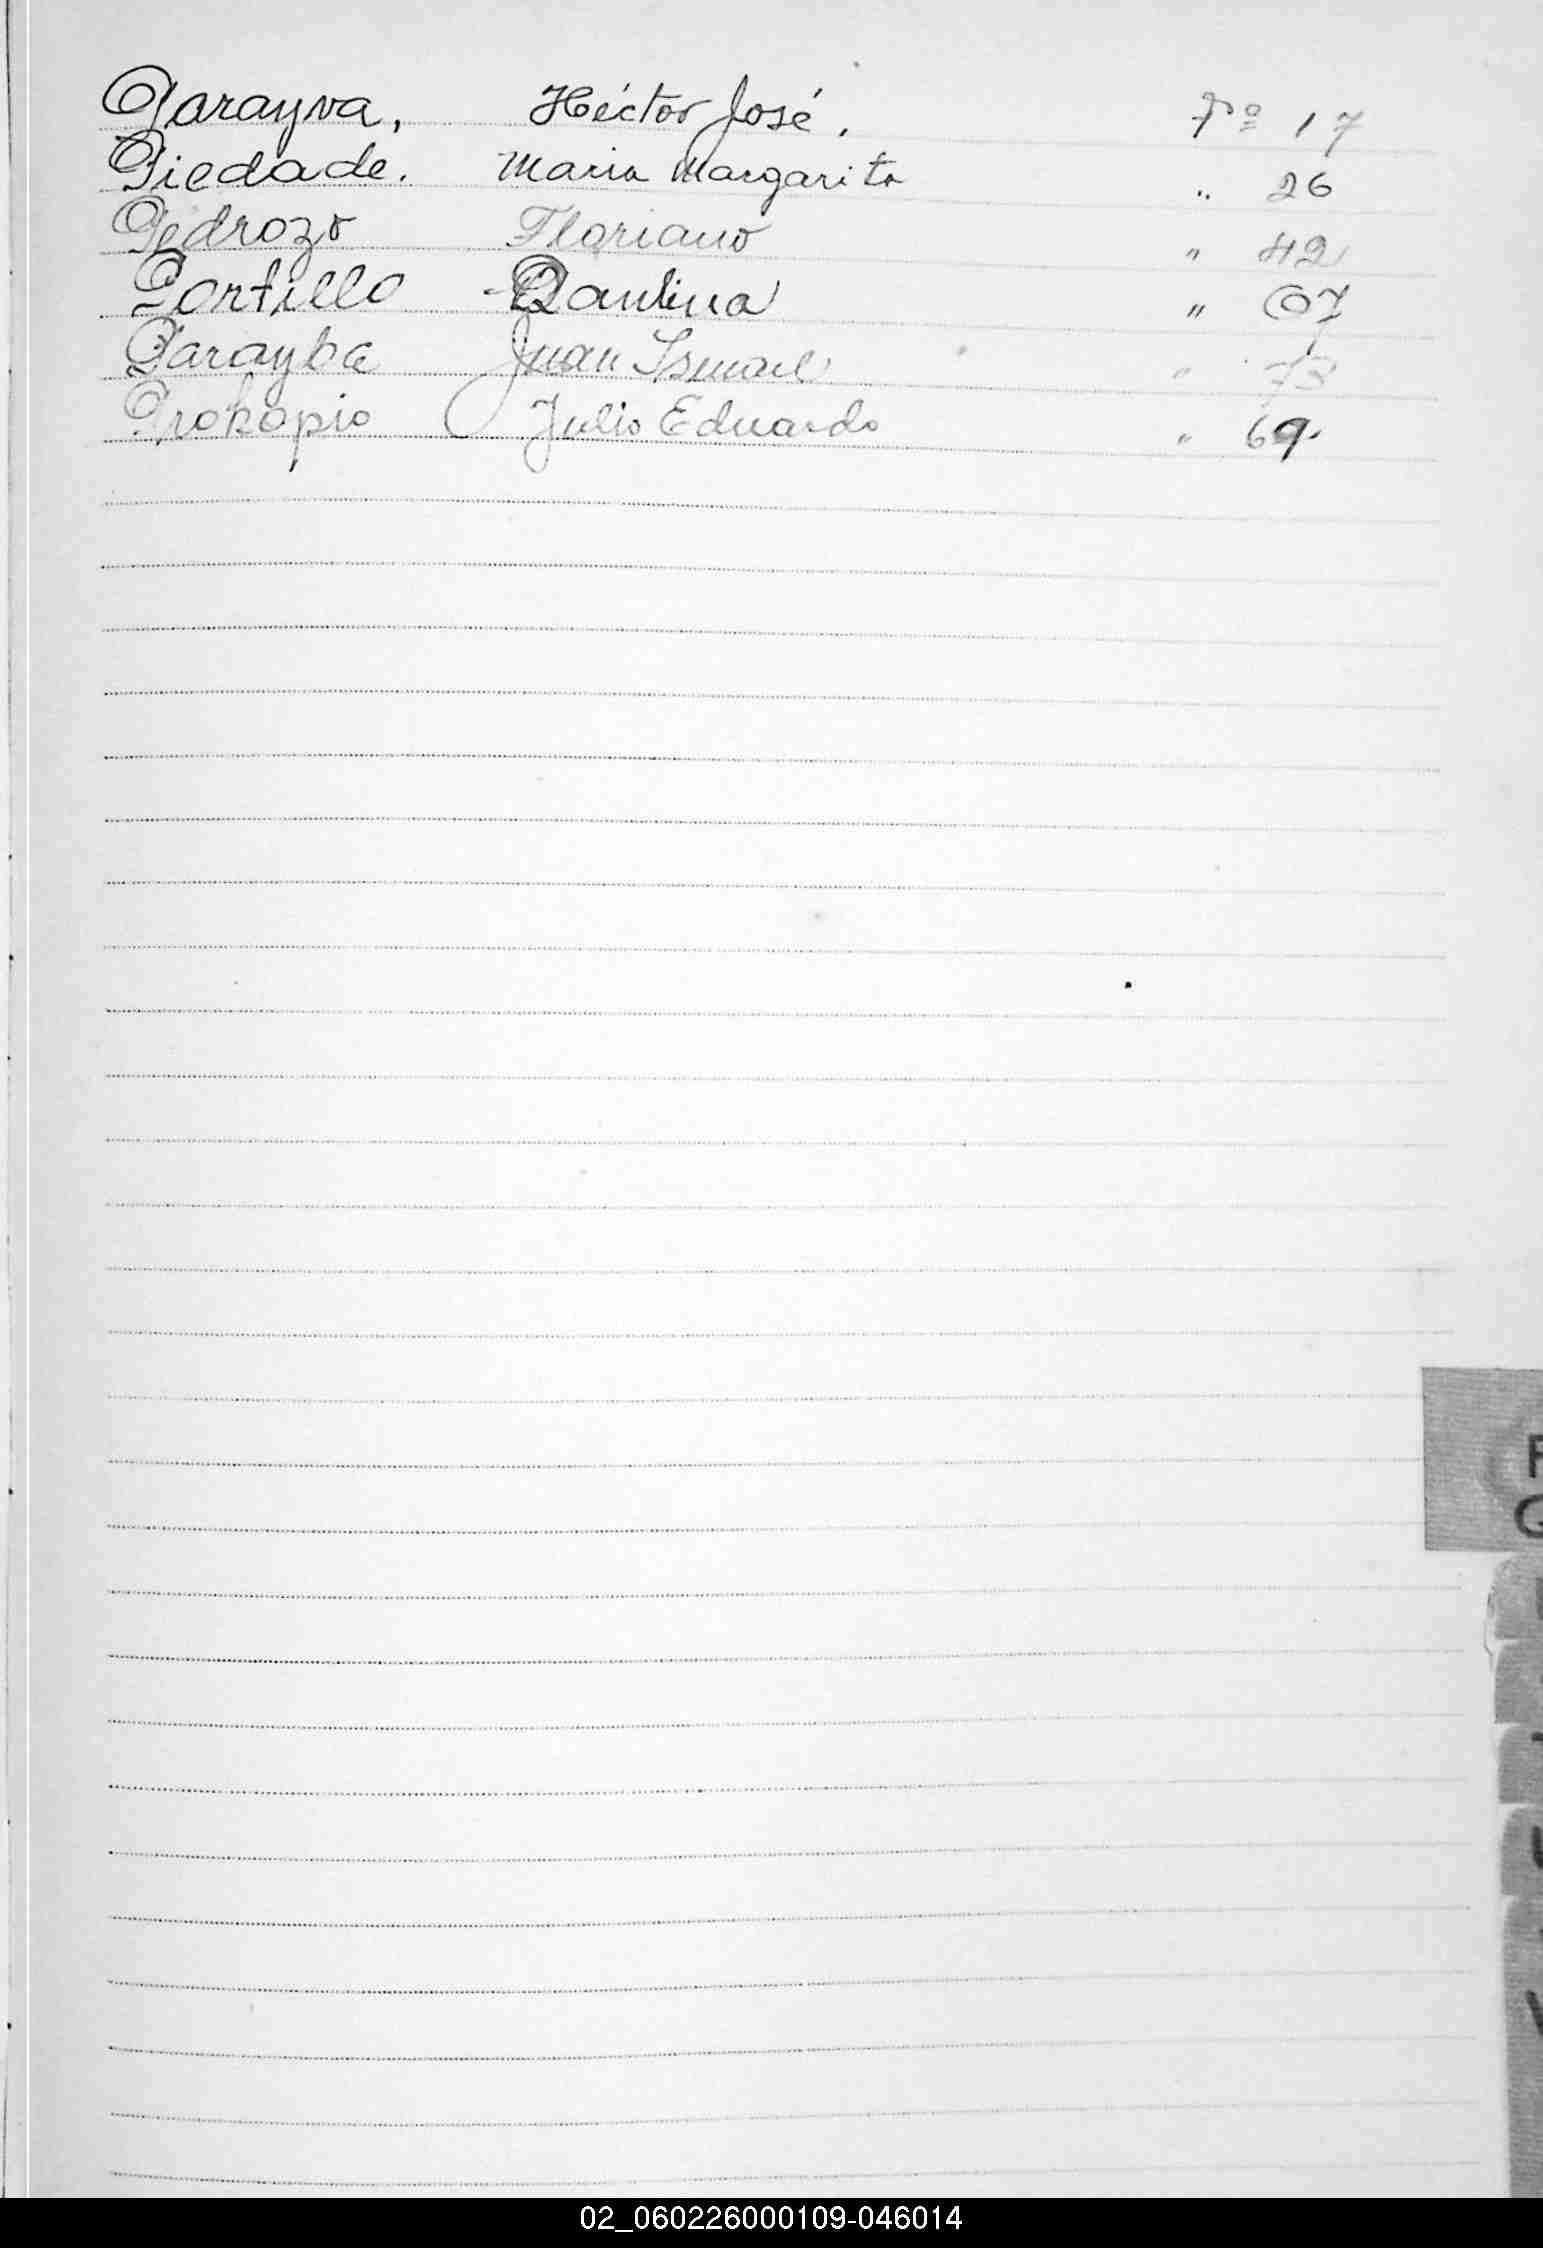 Parayva, Héctor José. Fº 17
Piedade. Maria Margarita " 26
Pedrozo Floriano " 42
Portillo Paulina " 67
Parayba Juan Ismael " 73
Prokopio Julio Eduardo " 69.
02_060226000109-046014